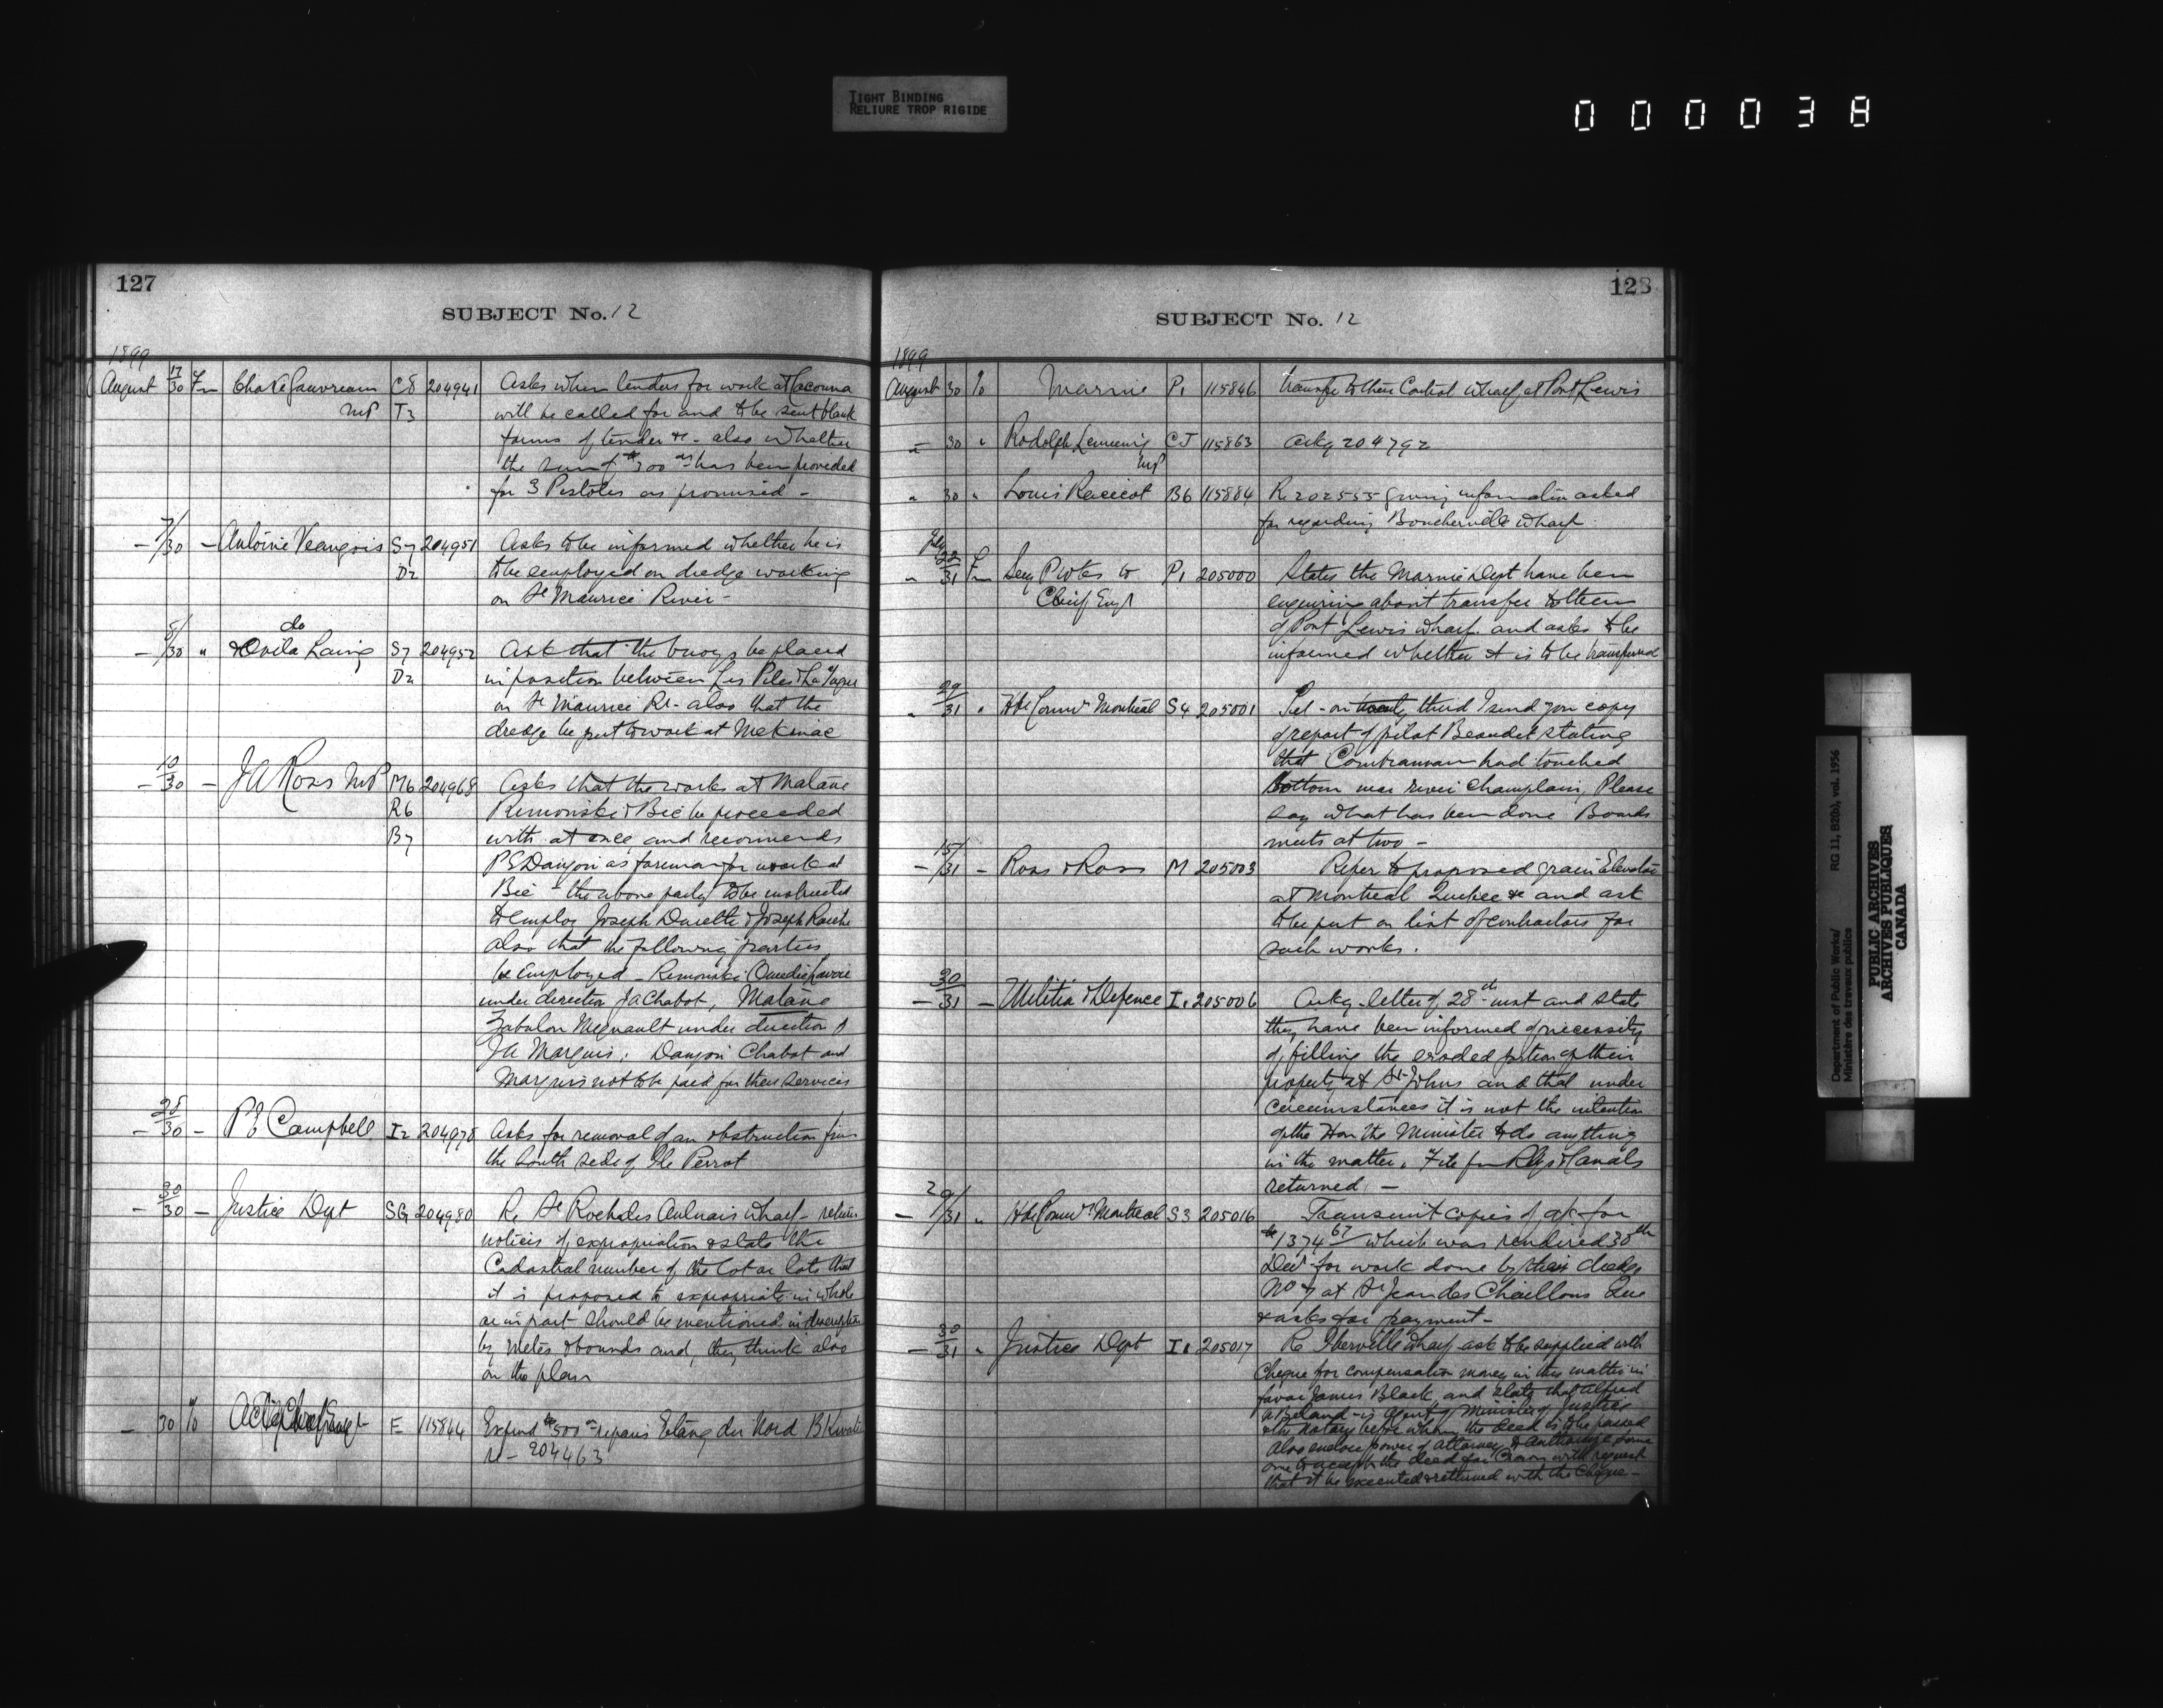 TIGHT BINDING
RELIURE TROP RIGIDE
000038
127
SUBJECT No. 12
1899
August 17/30 Fm Chas A Gauvreau MP C8 T3 204941 Asks when tenders for work at Cacouna
will be called for and to be sent blank
forms of tender &c - also whether
the sum of $300 00 has been provided
for 3 Pistoles as promised -
- 7/30 - Antoine S7 D2 204951 Asks to be informed whether he is
to be employed on dredge working
on St Maurice River -
- 8/30 " do & Ovila Laing S7 D2 204952 Ask that the buoys be placed
in position between Les Piles & La Tuque
on St Maurice Rr - also that the
dredge be put to work at Mekinac
- 10/30 - JA Ross MP M6 R6 B7 204968 Asks that the works at Matane
Rimouski & Bic be proceeded
with at once and recommends
P E Danjou as foreman for work at
Bic - the above party to be instructed
to employ Joseph & Joseph
also that the following parties
be employed - Rimouski
under direction JA Chabot, Matane
Zabulon Meqnault under direction of
JA Marquis. Danjou Chabot and
Marquis not to be paid for their services
- 28/30 - P E Campbell I2 204978 Asks for removal of an obstruction from
the South side of Ile Perrot
- 30/30 - Justice Dept SG 204980 Re St Roch des Aulnais wharf - returns
notices of expropriation & state the
Cadastral number of the lot or lots that
it is proposed to expropriate in whole
or in part should be mentioned in description
by metes & bounds and, they think also
on the plan
- 30 % Actg Chief Engr E 115844 Expend $500 00 repairs Etang du Nord Bkwater
re - 204463
128
SUBJECT No. 12
1899
August 30 % Marine P1 115846 transfer to their Control wharf at Port Lewis
" 30 " Rodolph Lemieux MP CJ 115863 Ackg 204792
" 30 " Louis Racicot B6 115884 Re 202555 giving information asked
for regarding Boucherville wharf
" July 22/31 Fm Secy P Wks to Chief Engr P1 205000 States the Marine Dept have been
enquiring about transfer to them
of Port Lewis wharf. and asks to be
informed whether it is to be transferred
" 29/31 " Hbr Commrs Montreal S4 205001 Tel - on twenty third I send you copy
of report of pilot Beaudet stating
that had touched
bottom near river Champlain, Please
say what has been done Board
meets at two -
- 15/31 - Ross & Ross M 205003 Refer to proposed grain Elevator
at Montreal Quebec &c and ask
to be put on list of contractors for
such works.
- 30/31 - Militia & Defence I1 205006 Ackg. letter of 28th inst and state
they have been informed of necessity
of filling the eroded portion of their
property at St Johns and that under
circumstances it is not the intention
of the Hon the Minister to do anything
in the matter. File fm Rlys & Canals
returned. -
- 29/31 " Hbr Commrs Montreal S3 205016 Transmit copies of a/c for
$1374 67 which was rendered 30th
Decr for work done by their dredge
No 7 at St Jean des Chaillons Que
& asks for payment -
- 30/31 " Justice Dept I1 205017 Re Iberville wharf ask to be supplied with
Cheque for compensation money in this matter in
favor James Black, and state that Alfred
A Beland - is agent of Minister of Justice
& the Notary before whom the deed is to be passed
Also enclose power of attorney to authorize some
one to accept the deed for Crown with request
that it be executed & returned with the Cheque -
Department of Public Works/ RG 11, B2(b), vol. 1956
Ministère des travaux publics
PUBLIC ARCHIVES
ARCHIVES PUBLIQUES
CANADA